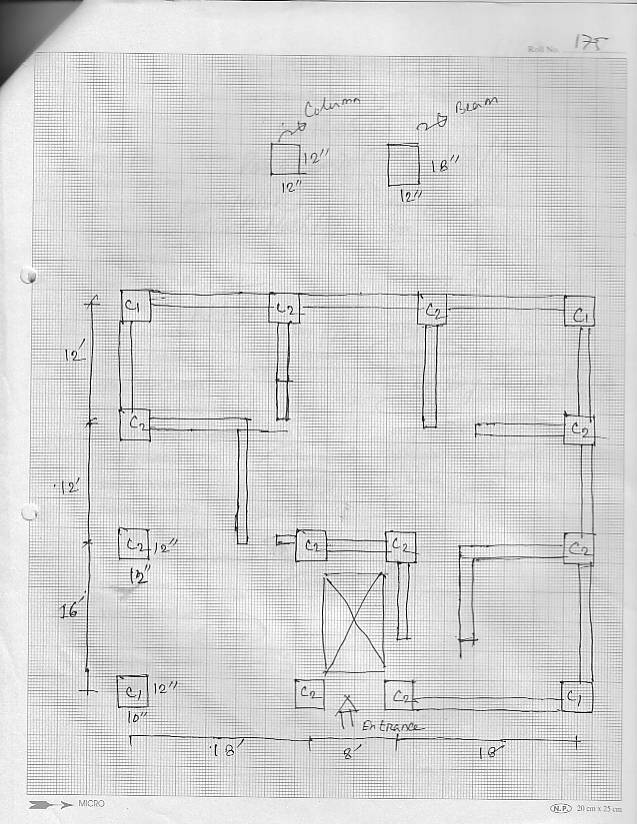 Roll No. 175
Column
Beam
12"
18"
12"
12"
C1
C2
C2
C1
12'
C2
C2
12'
C2
12"
C2
C2
C2
12"
16'
C1
12"
C2
C2
C1
10"
Entrance
18'
8'
18'
MICRO
N.P.
20 cm x 25 cm